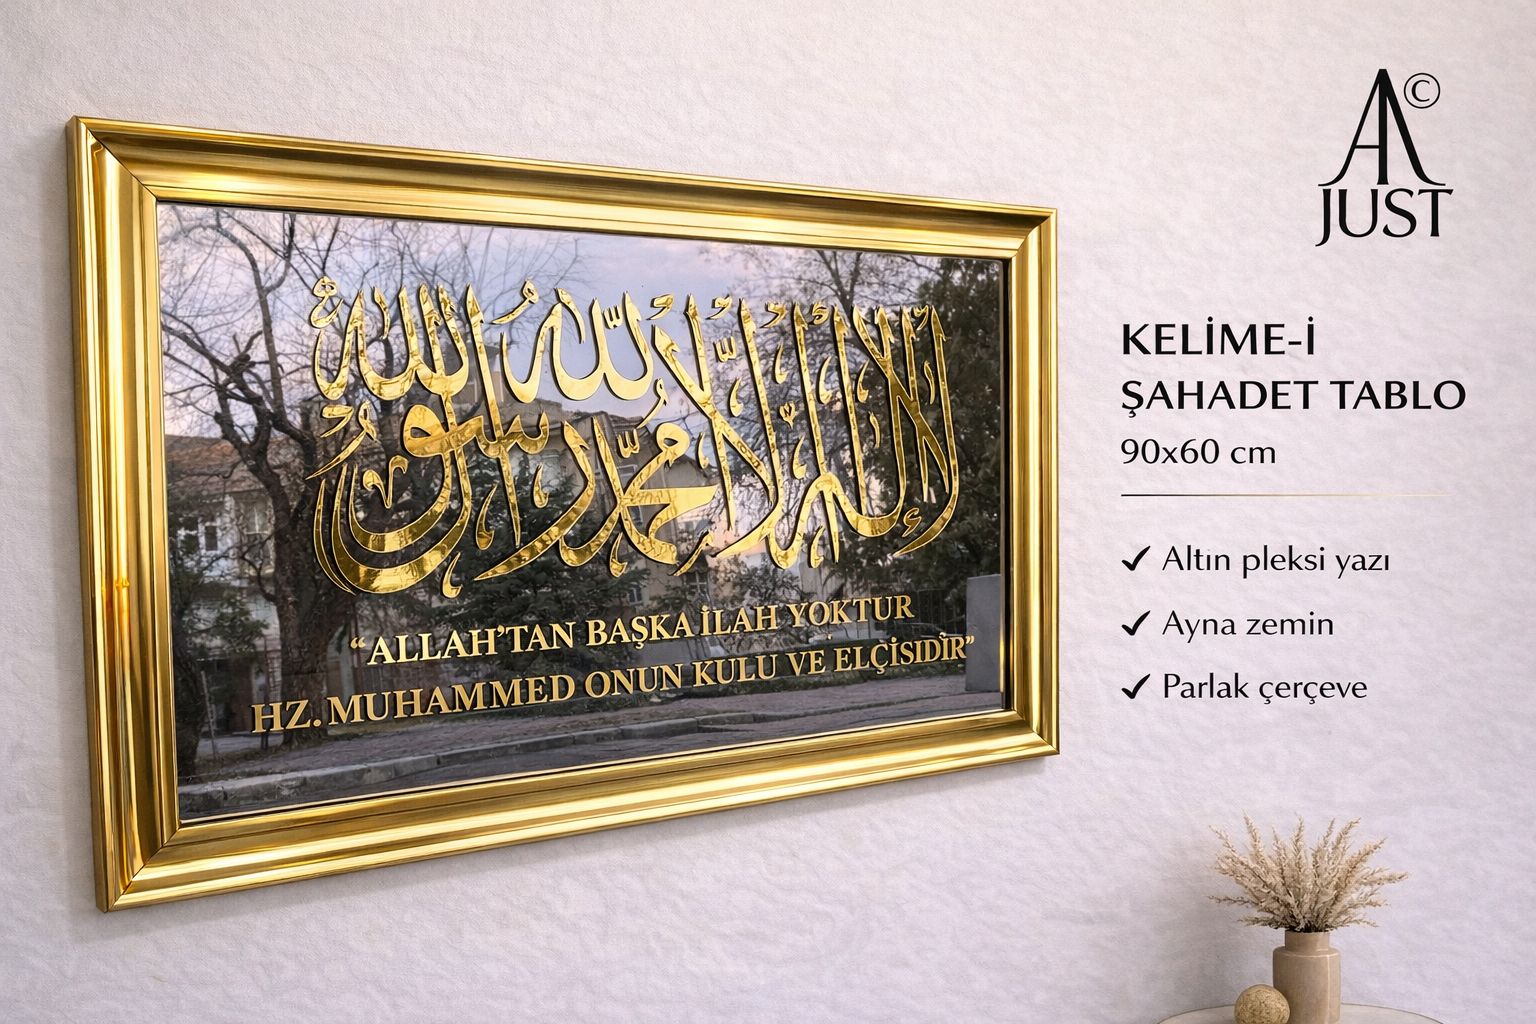 لا إله إلا الله محمد رسول الله
“ALLAH’TAN BAŞKA İLAH YOKTUR
HZ. MUHAMMED ONUN KULU VE ELÇİSIDİR”
A©
JUST
KELİME-İ
ŞAHADET TABLO
90x60 cm
✓ Altın pleksi yazı
✓ Ayna zemin
✓ Parlak çerçeve